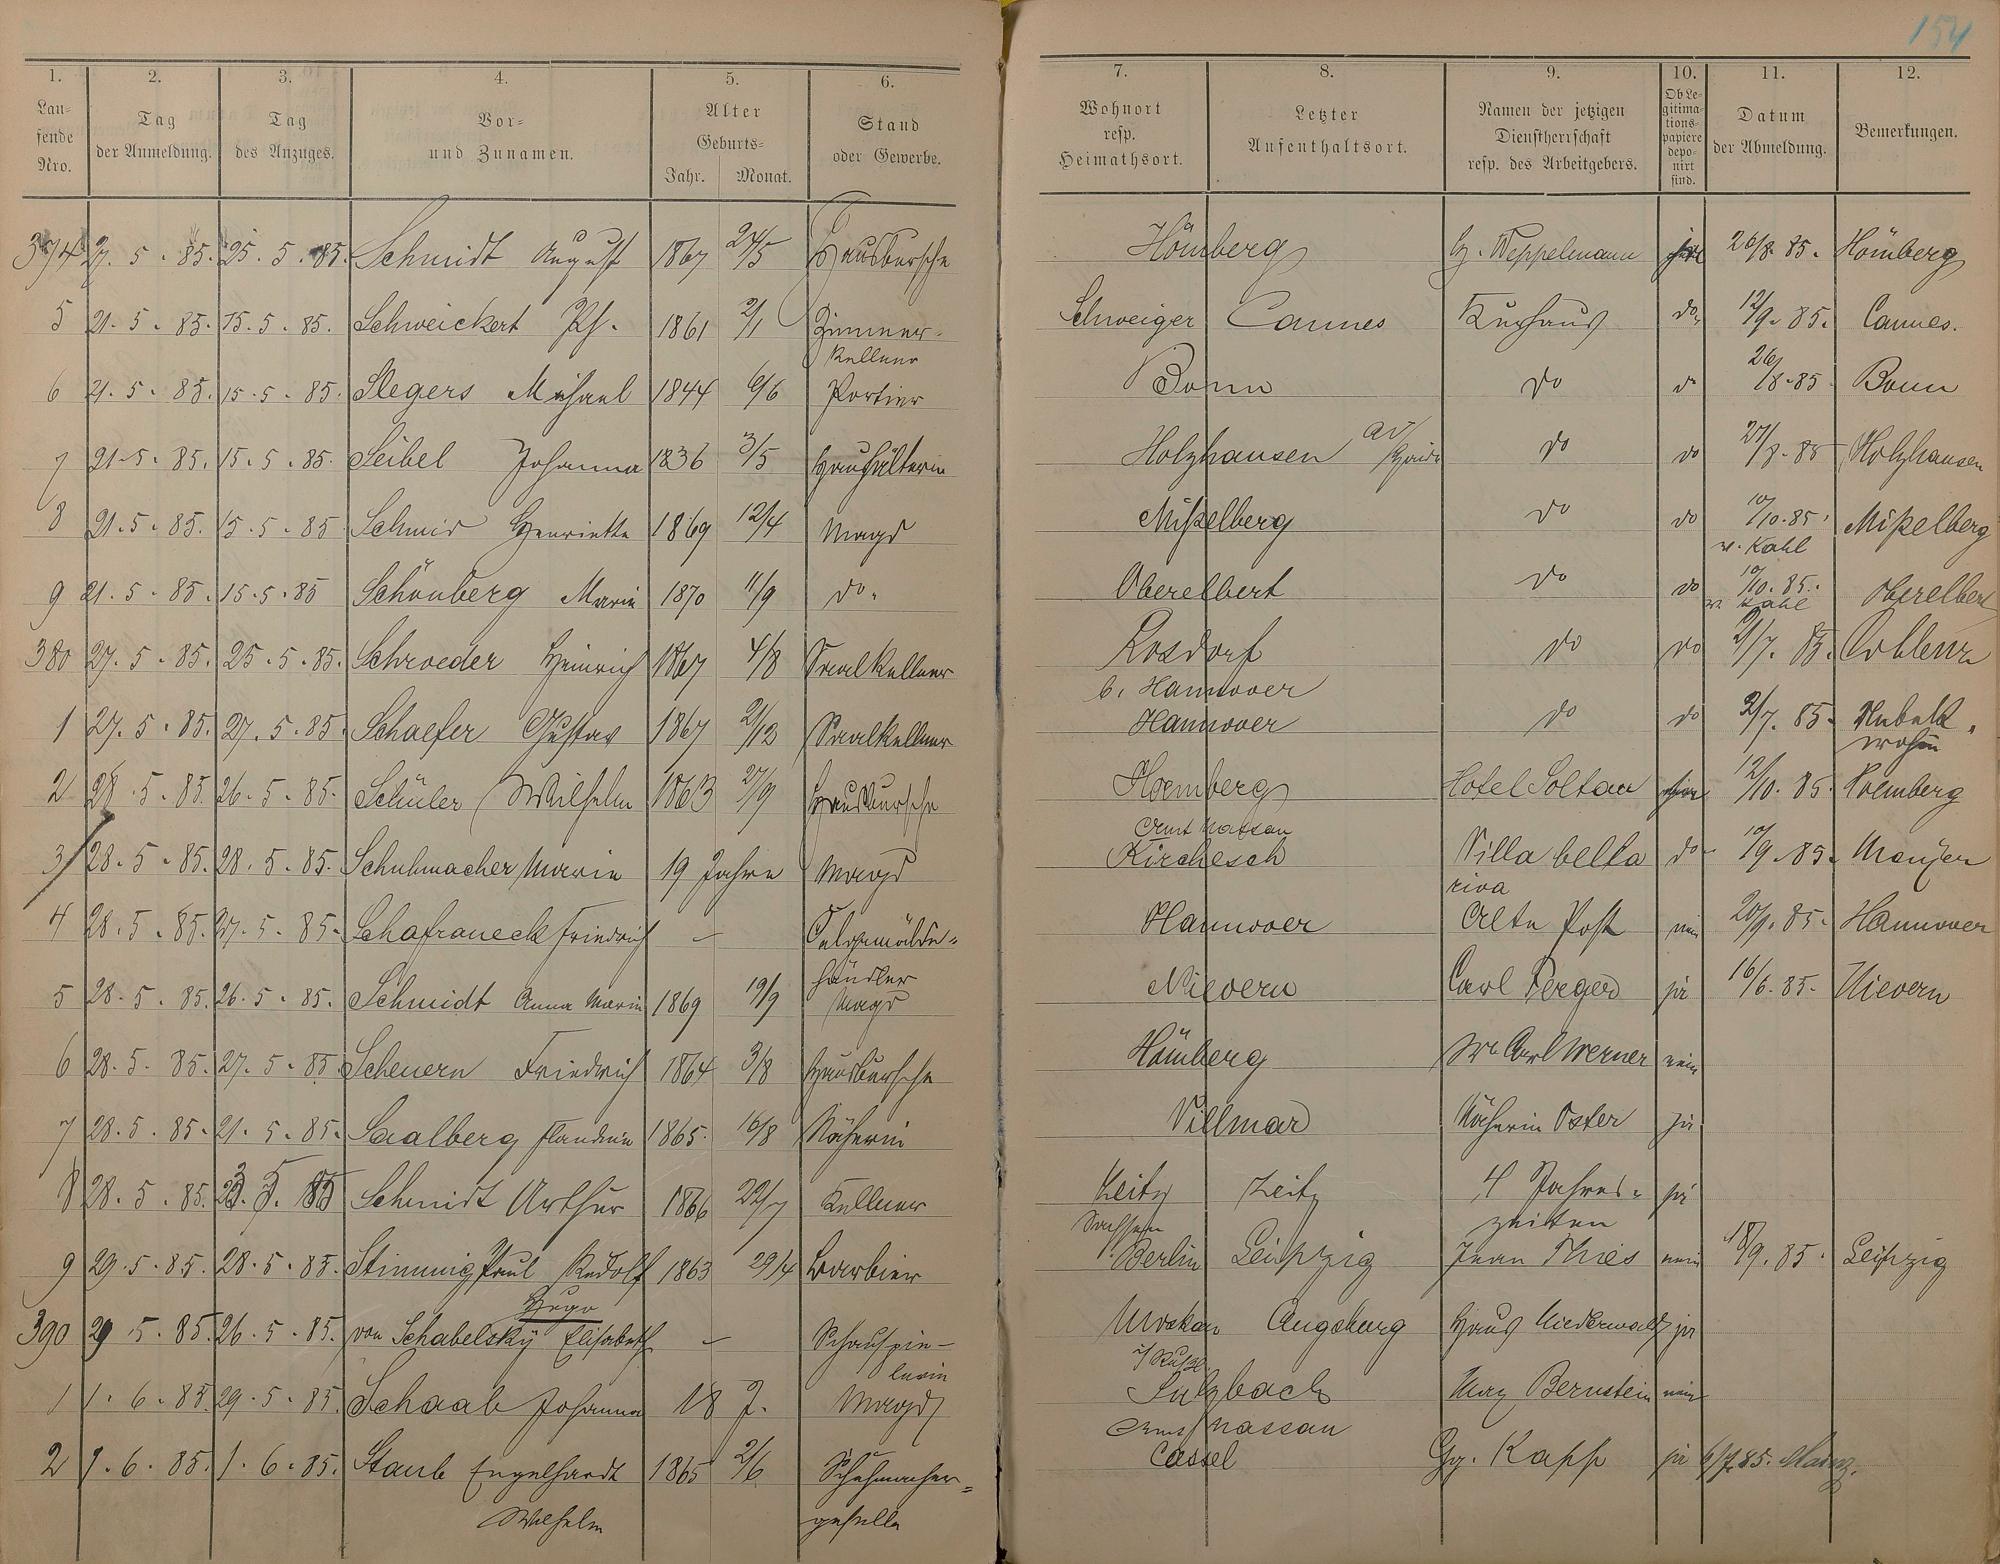 154
1. 2. 3. 4. 5. 6. 7. 8. 9. 10. 11. 12.
Lau-
fende
Nro.
Tag
der Anmeldung.
Tag
des Anzuges.
Vor-
und Zunamen.
Alter
Geburts-
Jahr. Monat.
Stand
oder Gewerbe.
Wohnort
resp.
Heimathsort.
Letzter
Aufenthaltsort.
Namen der jetzigen
Dienstherrschaft
resp. des Arbeitgebers.
Ob Le-
gitima-
tions-
papiere
depo-
nirt
sind.
Datum
der Abmeldung.
Bemerkungen.
374 27. 5. 85. 25. 5. 85. Schmidt August 1867 24/5 Hausbursche Hömberg H. Weppelmann 26/8. 85. Hömberg
5 21. 5. 85. 15. 5. 85. Schweickert 1861 2/1 Zimmer- Schweiger Cannes Kurhaus do 12/9. 85. Cannes.
kellner
6 21. 5. 85. 15. 5. 85. Slegers Michael 1844 6/6 Portier Bonn do do 26/8. 85 Bonn
7 21. 5. 85. 15. 5. 85. Seibel Johanna 1836 3/5 Haushälterin Holzhausen a/d Haide do do 27/8. 85 Holzhausen
8 21. 5. 85. 15. 5. 85 Schmid Henriette 1869 12/4 Magd Mißelberg do do 10/10. 85. Mißelberg
w. Kahl
9 21. 5. 85. 15. 5. 85 Schönberg Marie 1870 11/9 do. Oberelbert do do 10/10. 85. Oberelbert
w. Kahl
380 27. 5. 85. 25. 5. 85. Schroeder Heinrich 1867 4/8 Saalkellner Rosdorf do do 2/7. 85. Coblenz
b. Hannover
1 27. 5. 85. 27. 5. 85. Schaefer Gustav 1867 21/12 Saalkellner Hannover do do 2/7. 85. Unbekt.
wohin
2 28. 5. 85. 26. 5. 85. Schüler Wilhelm 1863 27/9 Hausbursche Hoemberg Hotel Soltau 12/10. 85. Hoemberg
Amt Nassau
3 28. 5. 85. 28. 5. 85. Schuhmacher Marie 19 Jahre Magd Kirchesch Villa bella do 10/9. 85.
riva
4 28. 5. 85. 27. 5. 85. Schafraneck Friedrich – Oelgemälde- Hannover Alte Post nein 20/9. 85. Hannover
händler
5 28. 5. 85. 26. 5. 85. Schmidt Anna Maria 1869 19/9 Magd Nievern Carl Berger ja 16/6. 85. Nievern
6 28. 5. 85. 27. 5. 85. Scheuern Friedrich 1864 3/8 Hausbursche Hömberg Carl Werner nein
7 28. 5. 85. 21. 5. 85. Saalberg 1865. 16/8 Näherin Villmar Näherin Oster ja
8 28. 5. 85. 23. 5. 85 Schmidt Arthur 1866 22/7 Kellner Zeitz Zeitz 4 Jahres- ja
Sachsen zeiten
9 29. 5. 85. 28. 5. 85. Stimmig Paul Rudolf 1863 29/4 Barbier Berlin Leipzig Jean Thies nein 18/9. 85. Leipzig
Hugo
390 29 5. 85. 26. 5. 85. von Schabelsky Elisabeth – Schauspie- Moskau Augsburg Haus Niederwald ja
lerin i/
1 1. 6. 85. 29. 5. 85. Schaab Johanna 18 J. Magd Sulzbach Max Bernstein nein
Amt Nassau
2 1. 6. 85. 1. 6. 85. Staub Engelhardt 1865 2/6 Schuhmacher- Cassel Gg. Kapp ja 6/7. 85. Mainz.
Wilhelm geselle